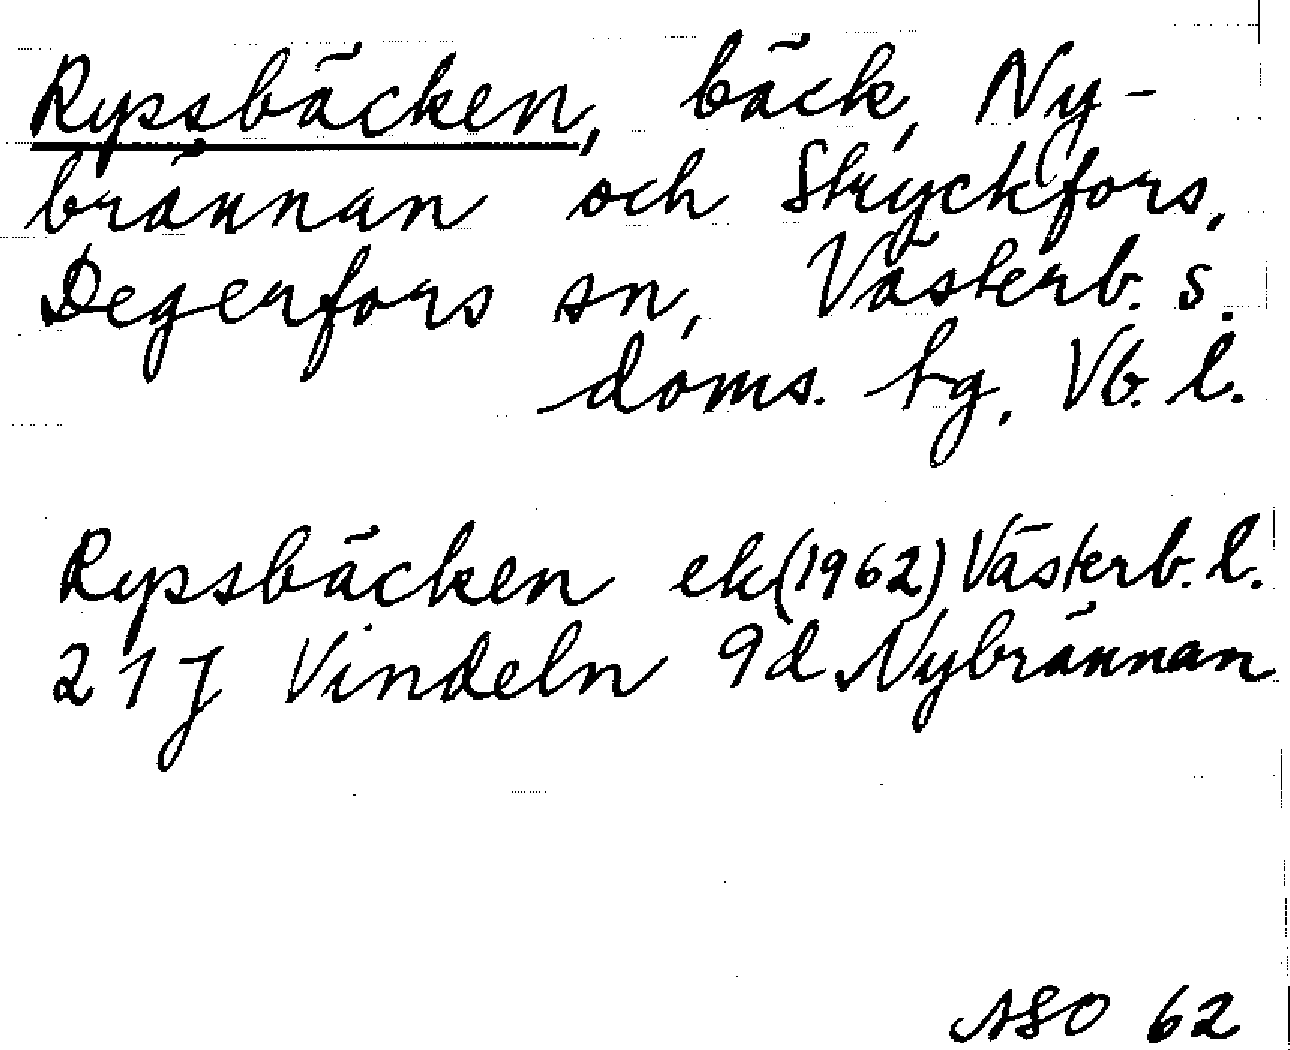 Rypssbäcken, bäck, Ny-
brännan och Stryckfors,
Degerfors sn, Västerb. s.
doms. tg. Vb. l.
Rypssbäcken ek (1962) Västerb. l.
21J Vindeln 9d Nybrännan
ASO 62